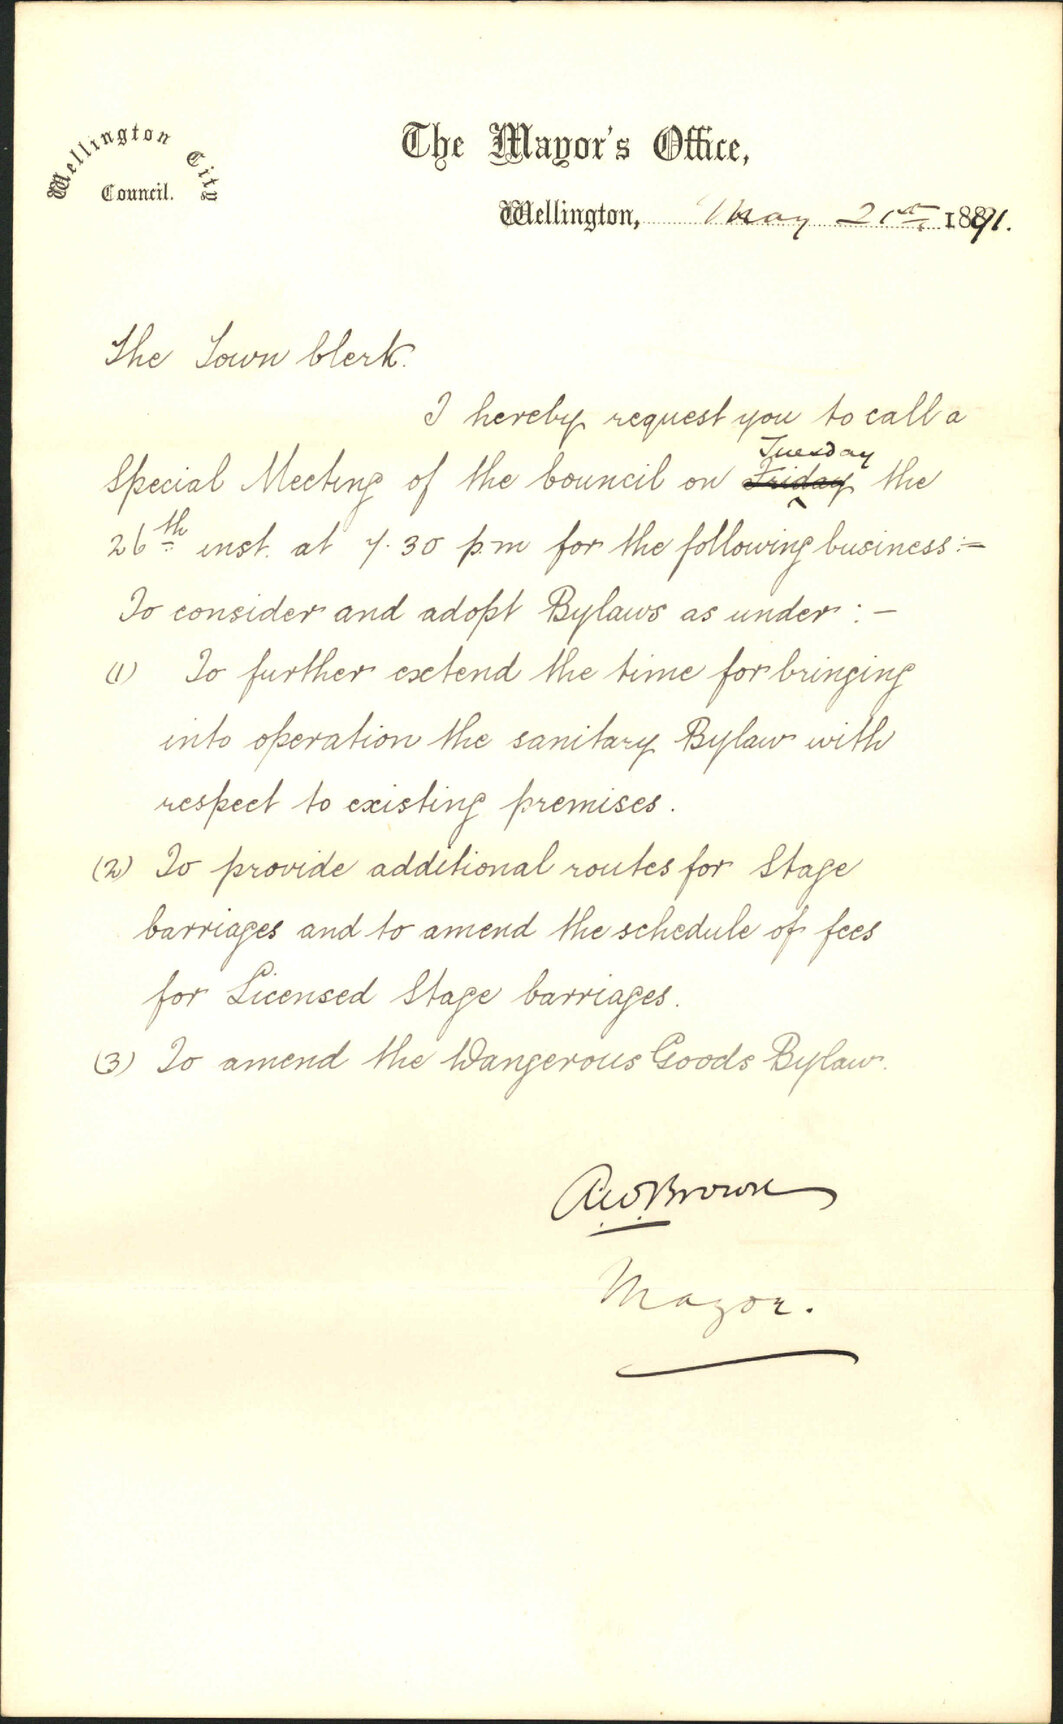 Wellington City
Council.
The Mayor's Office,
Wellington, May 21st 1891.
The Town Clerk.
I hereby request you to call a
Special Meeting of the Council on Friday Tuesday the
26th inst. at 7.30 p.m for the following business:-
To consider and adopt Bylaws as under :-
(1) To further extend the time for bringing
into operation the sanitary Bylaw with
respect to existing premises.
(2) To provide additional routes for Stage
Carriages and to amend the schedule of fees
for Licensed Stage Carriages.
(3) To amend the Dangerous Goods Bylaw.
A.W.Brown
Mayor.